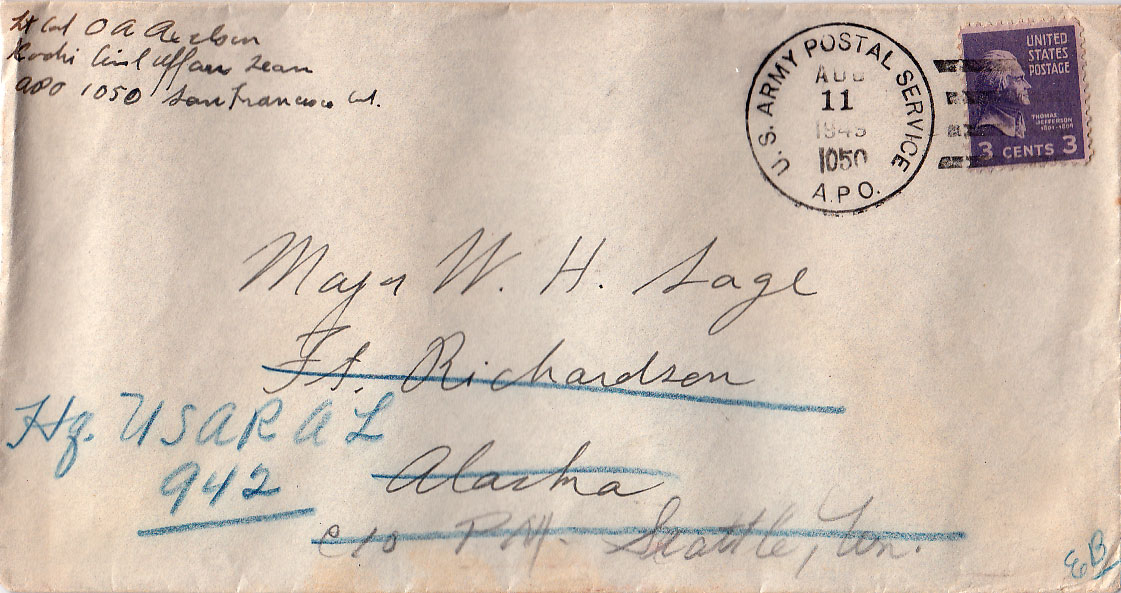 Lt Col O A Axelson
Kochi Civil Affairs Team
APO 1050 San Francisco Cal.
U.S. ARMY POSTAL SERVICE
AUG
11
1949
1050
A.P.O.
UNITED
STATES
POSTAGE
THOMAS
JEFFERSON
1801-1809
3 CENTS 3
Major W. H. Sage
Ft. Richardson
Hq. USARAL
942
Alaska
c/o P.M. Seattle, Wn.
EB